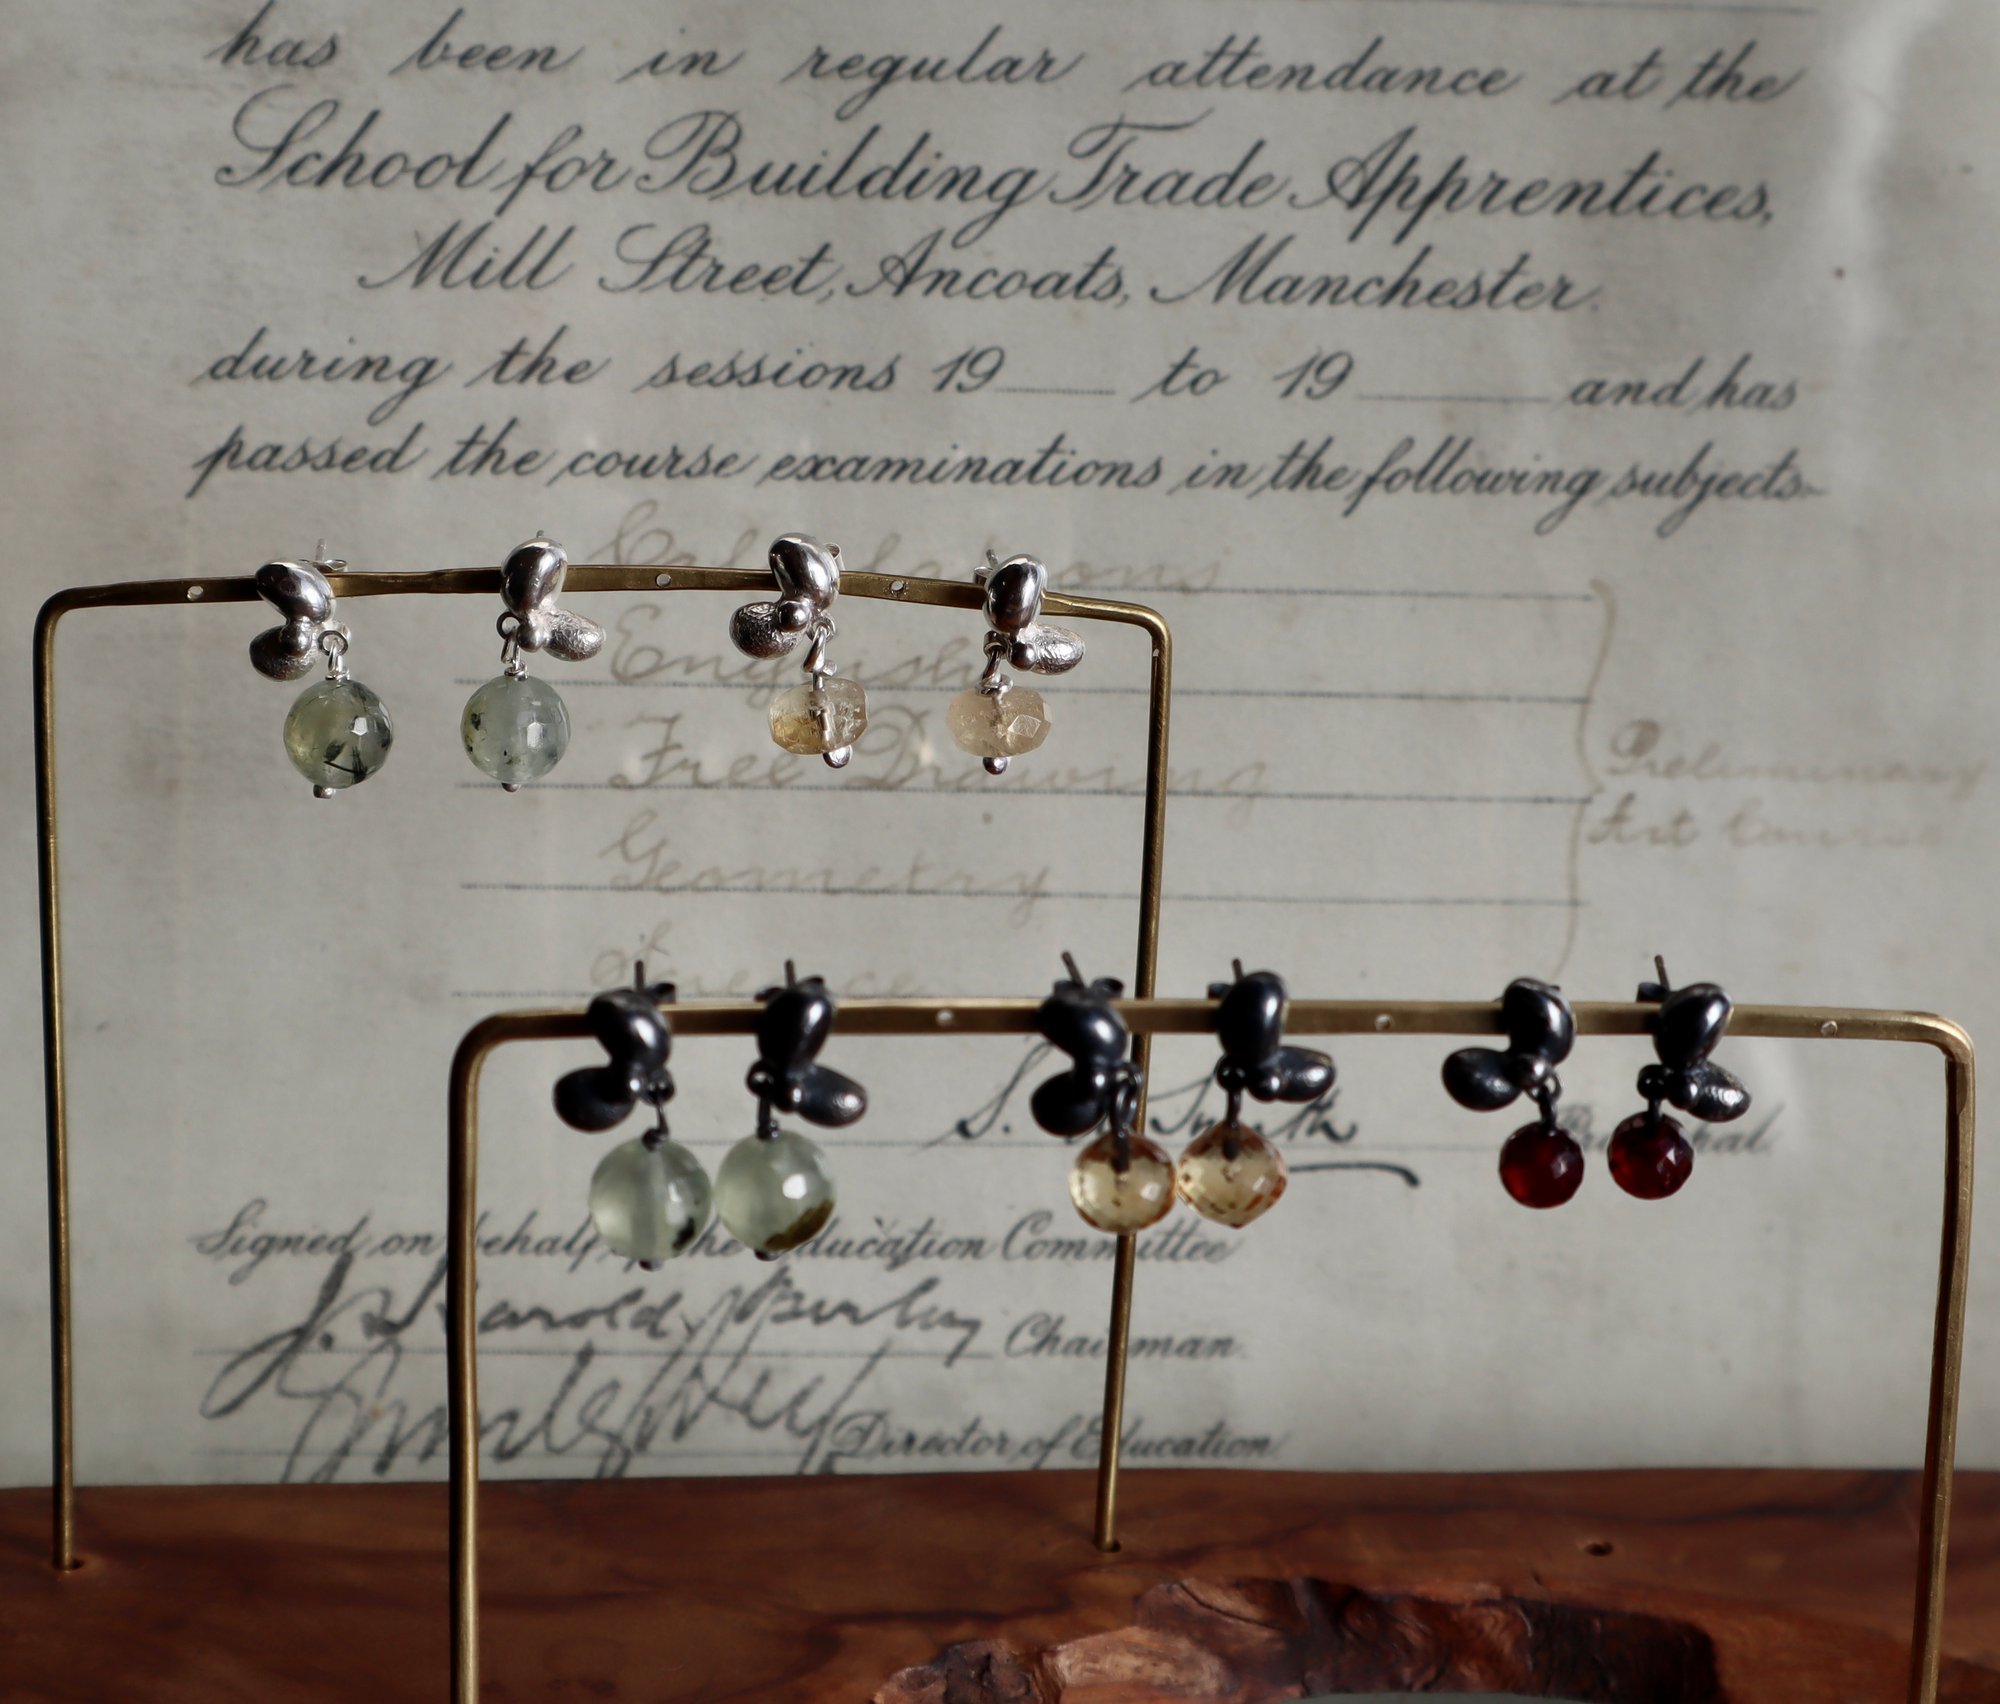 has been in regular attendance at the
School for Building Trade Apprentices,
Mill Street, Ancoats, Manchester.
during the sessions 19 to 19 and has
passed the course examinations in the following subjects-
Calculations
English
Free Drawing
Geometry
Science
Preliminary
Art Course
S. Smith
Principal.
Signed on behalf of the Education Committee
Harold
Chairman.
Director of Education